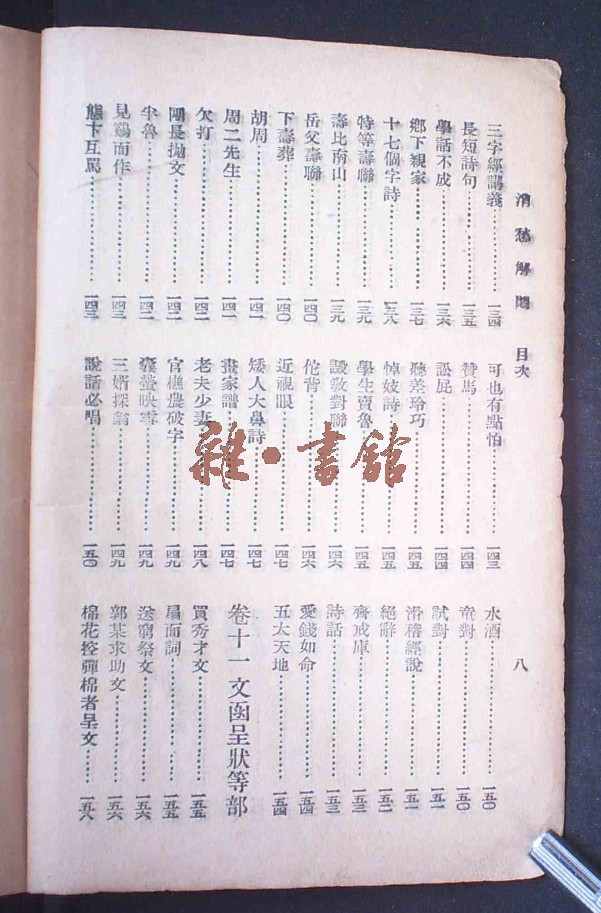 消愁解悶 目次
八
三字經講義…………一三四
長短詩句…………一三五
學話不成…………一三六
鄉下親家…………一三七
十七個字詩…………一三八
特等壽聯…………一三九
壽比南山…………一三九
岳父壽聯…………一四〇
下壽葬…………一四〇
胡周…………一四一
周二先生…………一四一
欠打…………一四二
閘長拋文…………一四二
半魯…………一四二
見鷄而作…………一四三
熊卞互罵…………一四三
可也有點怕…………一四三
贊馬…………一四四
訟屁…………一四四
聽差玲巧…………一四五
悼妓詩…………一四五
學生賣魯…………一四五
謖敎對聯…………一四六
佗背…………一四六
近視眼…………一四七
矮人大鼻詩…………一四七
畫家譜…………一四七
老夫少妻…………一四八
官樵農破字…………一四九
囊螢映雪…………一四九
三婿探翁…………一四九
說話必唱…………一五〇
水酒…………一五〇
童對…………一五〇
試對…………一五一
滑稽經說…………一五一
絕辭…………一五二
齋戒庫…………一五三
詩話…………一五三
愛錢如命…………一五四
五太天地…………一五四
卷十一文函呈狀等部
買秀才文…………一五五
扇面詞…………一五五
送窮祭文…………一五六
郭某求助文…………一五六
棉花控彈棉者呈文…………一五八
雜·書館